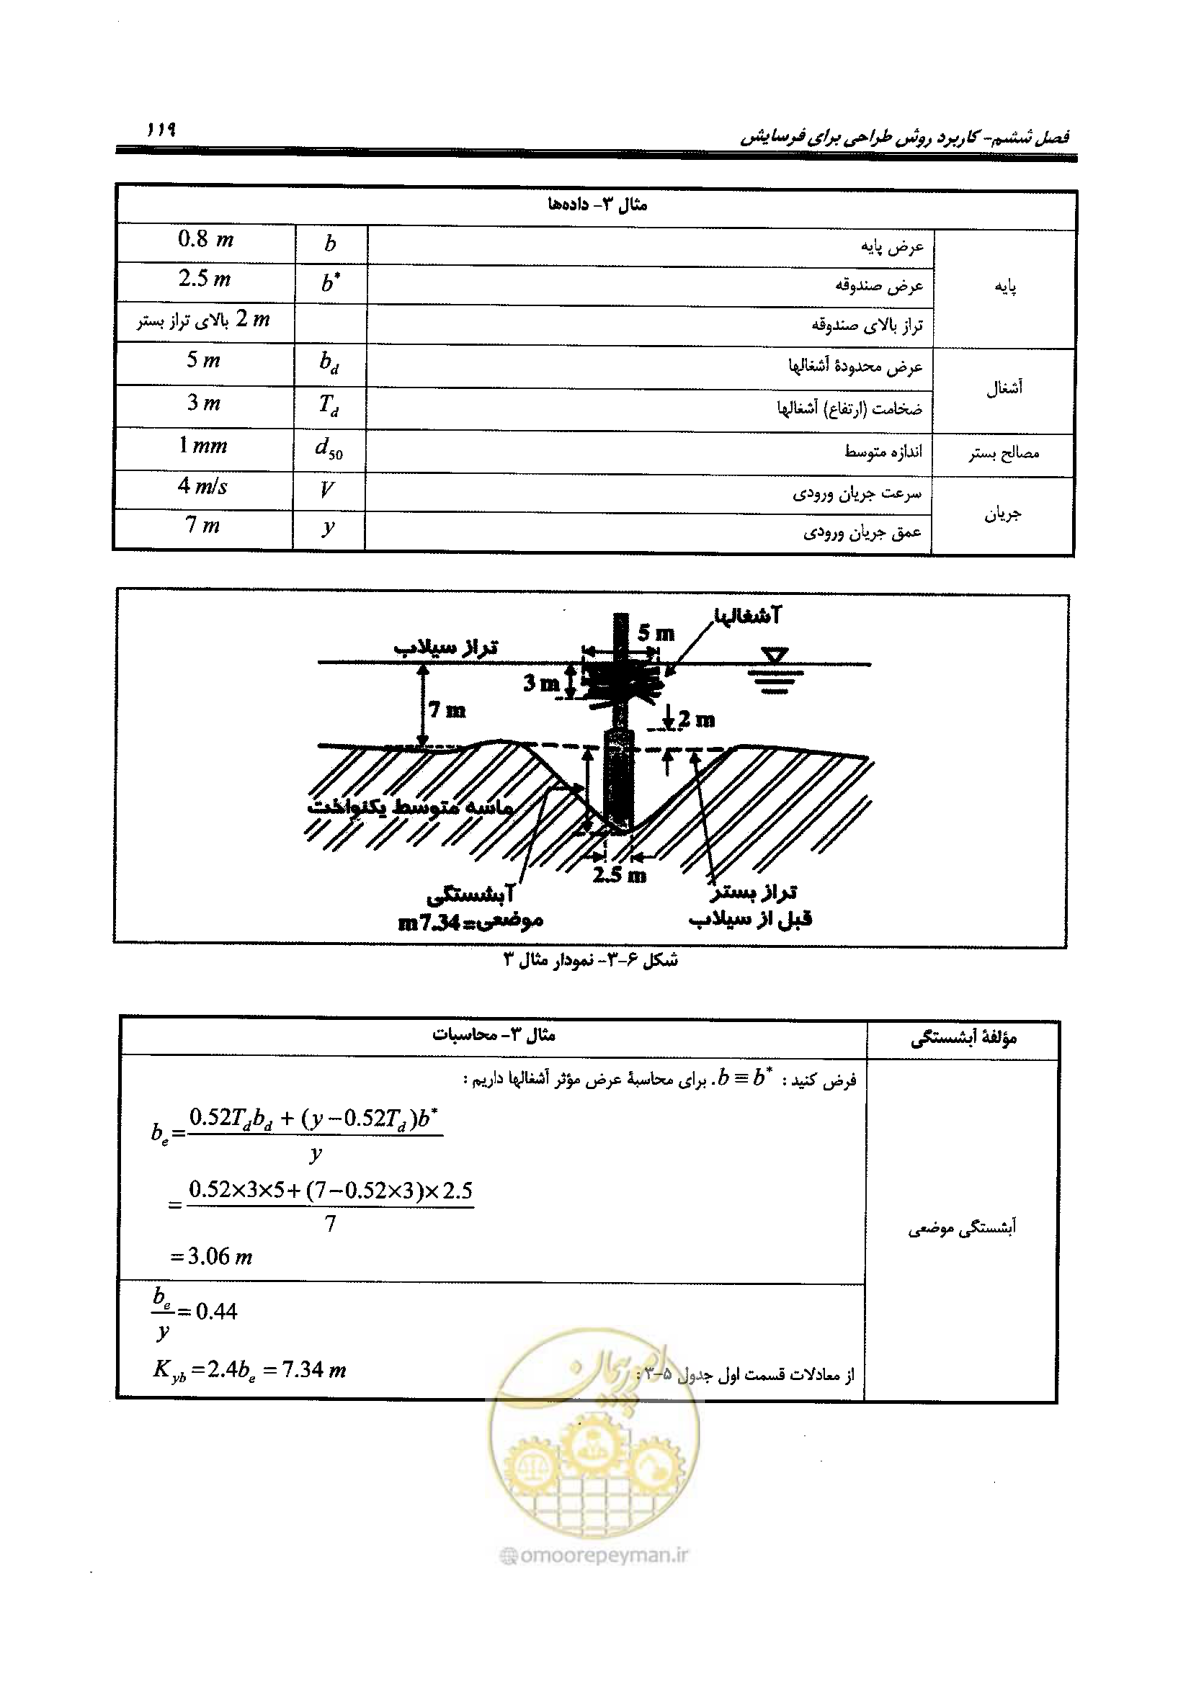 فصل ششم- کاربرد روش طراحی برای فرسایش ۱۱۹
مثال ۳- داده‌ها
پایه
عرض پایه b 0.8 m
عرض صندوقه b* 2.5 m
تراز بالای صندوقه 2 m بالای تراز بستر
آشغال
عرض محدودۀ آشغالها b_d 5 m
ضخامت (ارتفاع) آشغالها T_d 3 m
مصالح بستر اندازه متوسط d_50 1 mm
جریان
سرعت جریان ورودی V 4 m/s
عمق جریان ورودی y 7 m
آشغالها
5 m
تراز سیلاب
3 m
7 m
2 m
ماسه متوسط یکنواخت
2.5 m
آبشستگی
موضعی=7.34m
تراز بستر
قبل از سیلاب
شکل ۶-۳- نمودار مثال ۳
مؤلفۀ آبشستگی مثال ۳- محاسبات
فرض کنید : b ≡ b*. برای محاسبۀ عرض مؤثر آشغالها داریم :
b_e = (0.52T_d b_d + (y-0.52T_d)b*) / y
= (0.52×3×5+(7-0.52×3)×2.5) / 7
= 3.06 m
آبشستگی موضعی
b_e / y = 0.44
از معادلات قسمت اول جدول ۵-۳: K_yb = 2.4b_e = 7.34 m
امور پیمان
@omoorepeyman.ir